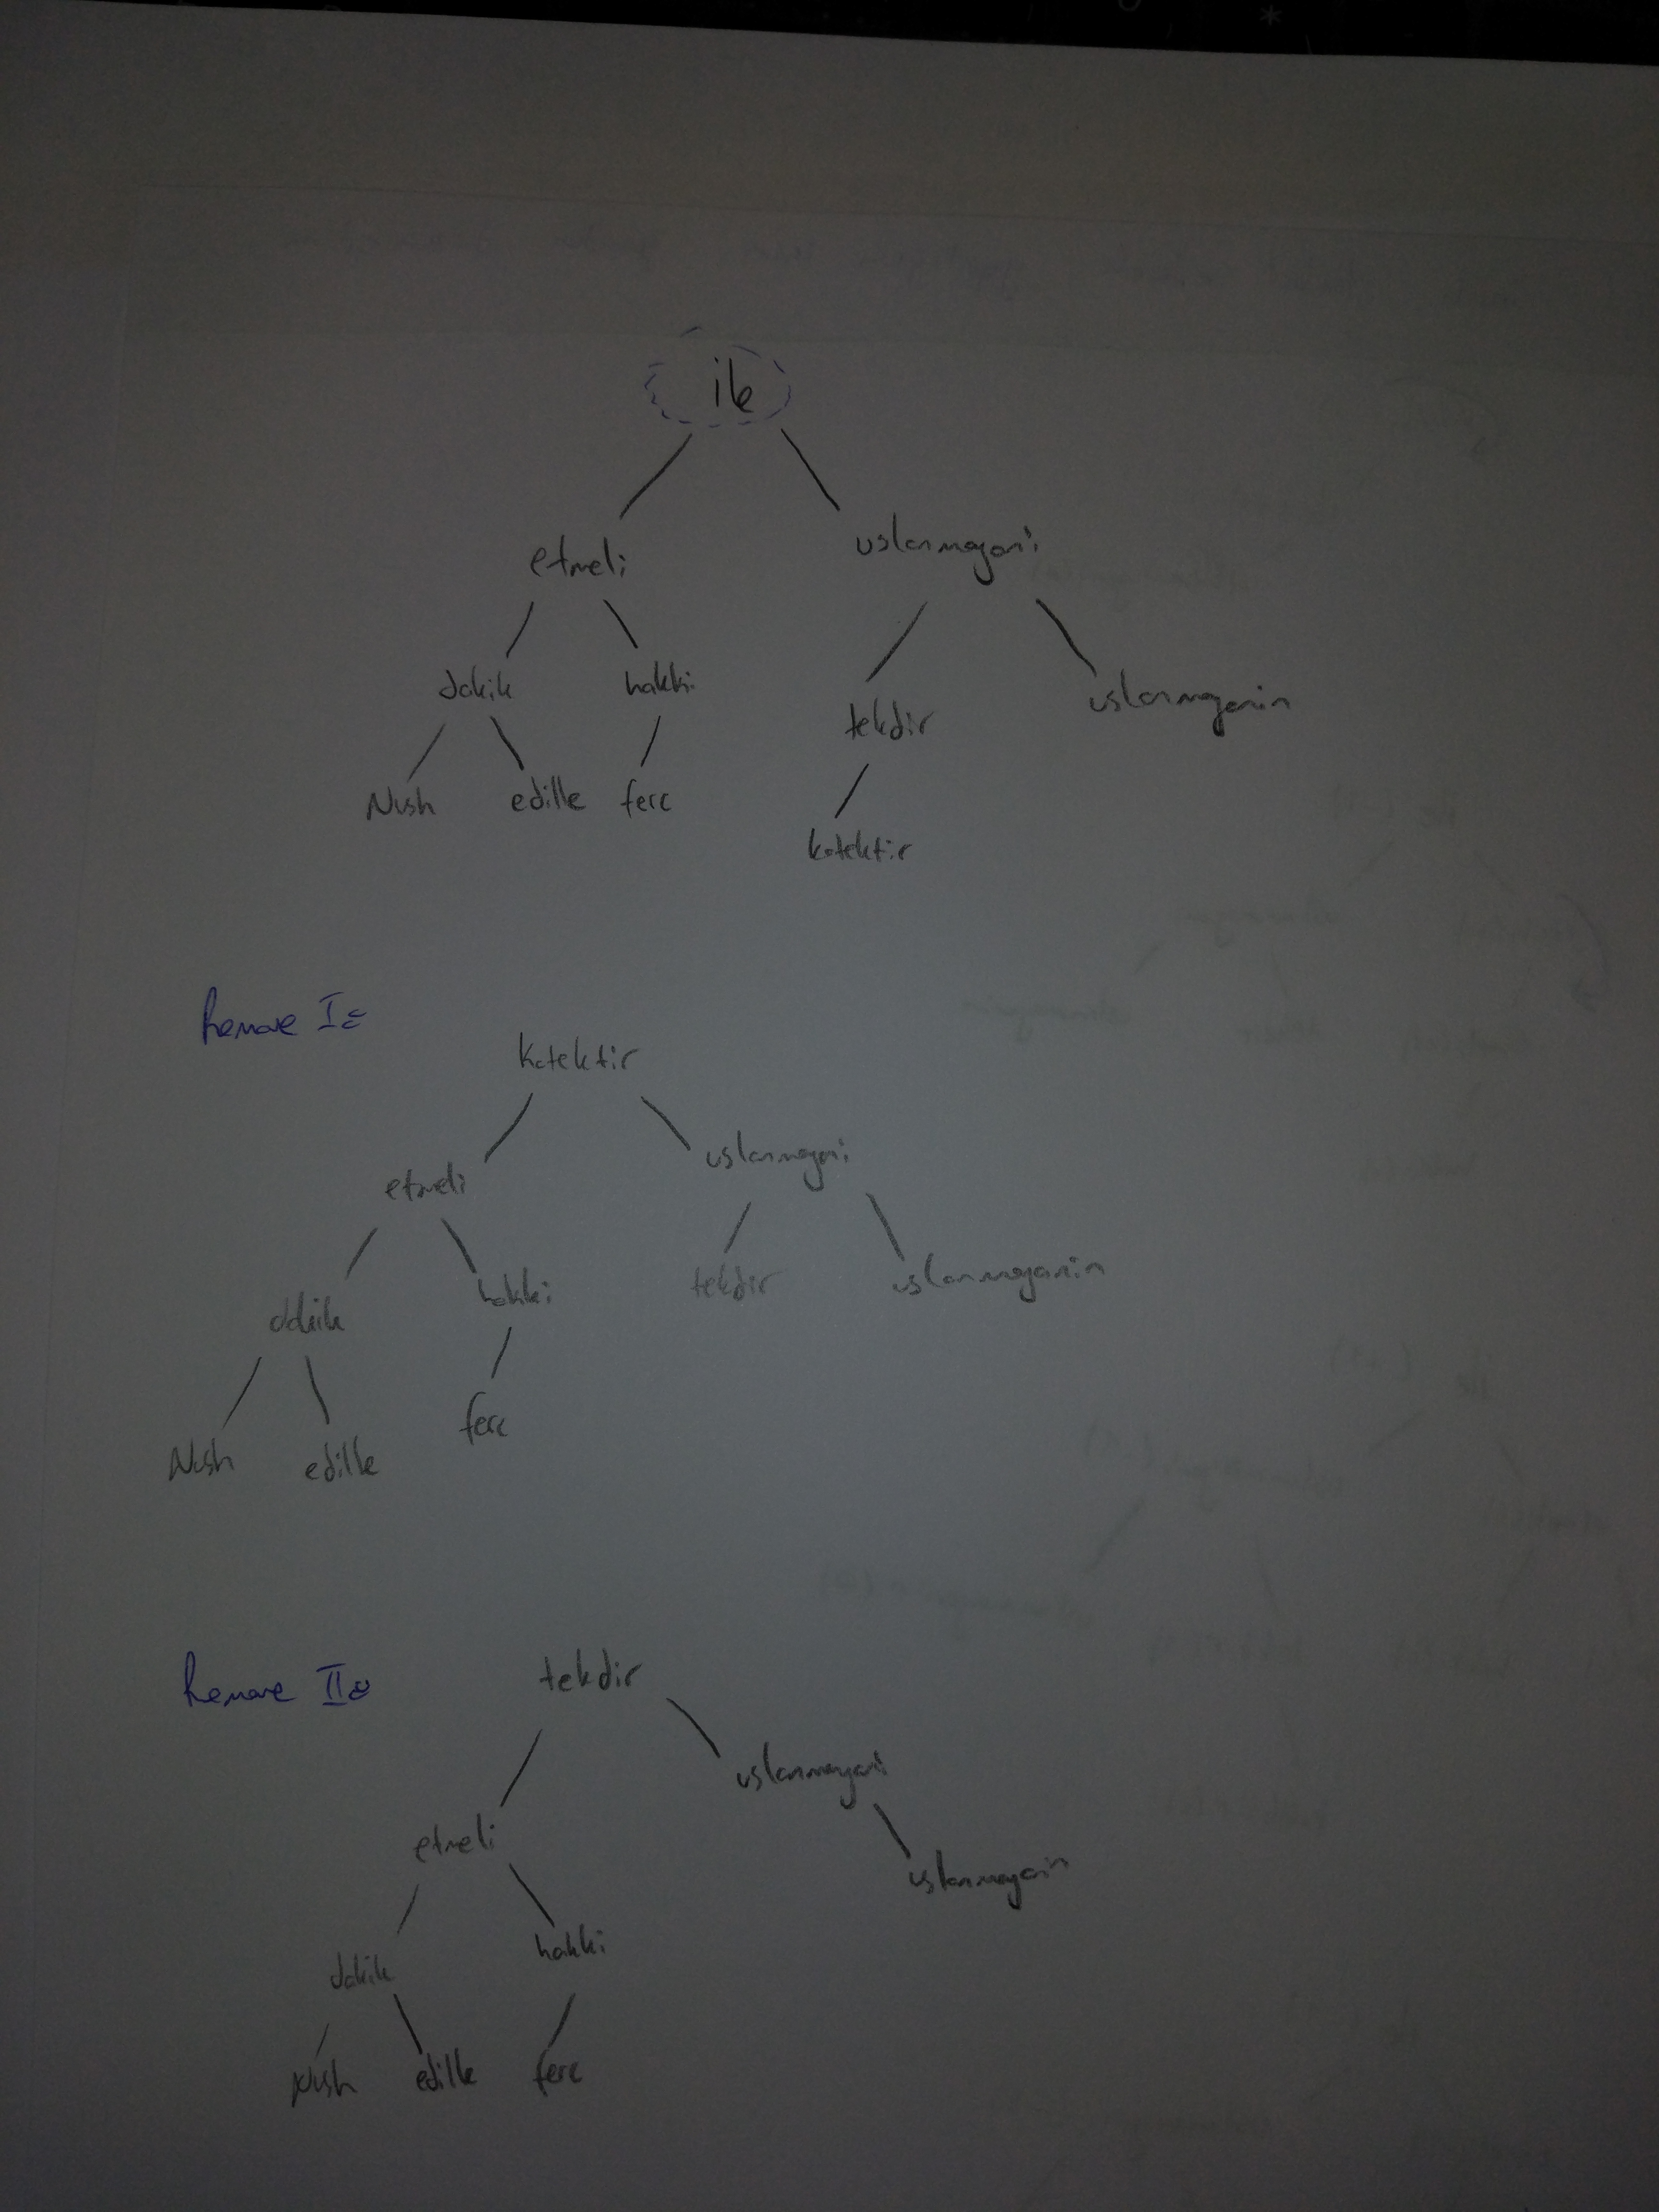 ile
etmeli uslanmayani
dakik hakki tekdir uslanmayanin
Nush edille ferc kotektir
Remove I:
Kotektir
etmeli uslanmayani
dakik hakki tekdir uslanmayanin
Nush edille ferc
Remove II:
tekdir
etmeli uslanmayani
dakik hakki uslanmayanin
Nush edille ferc